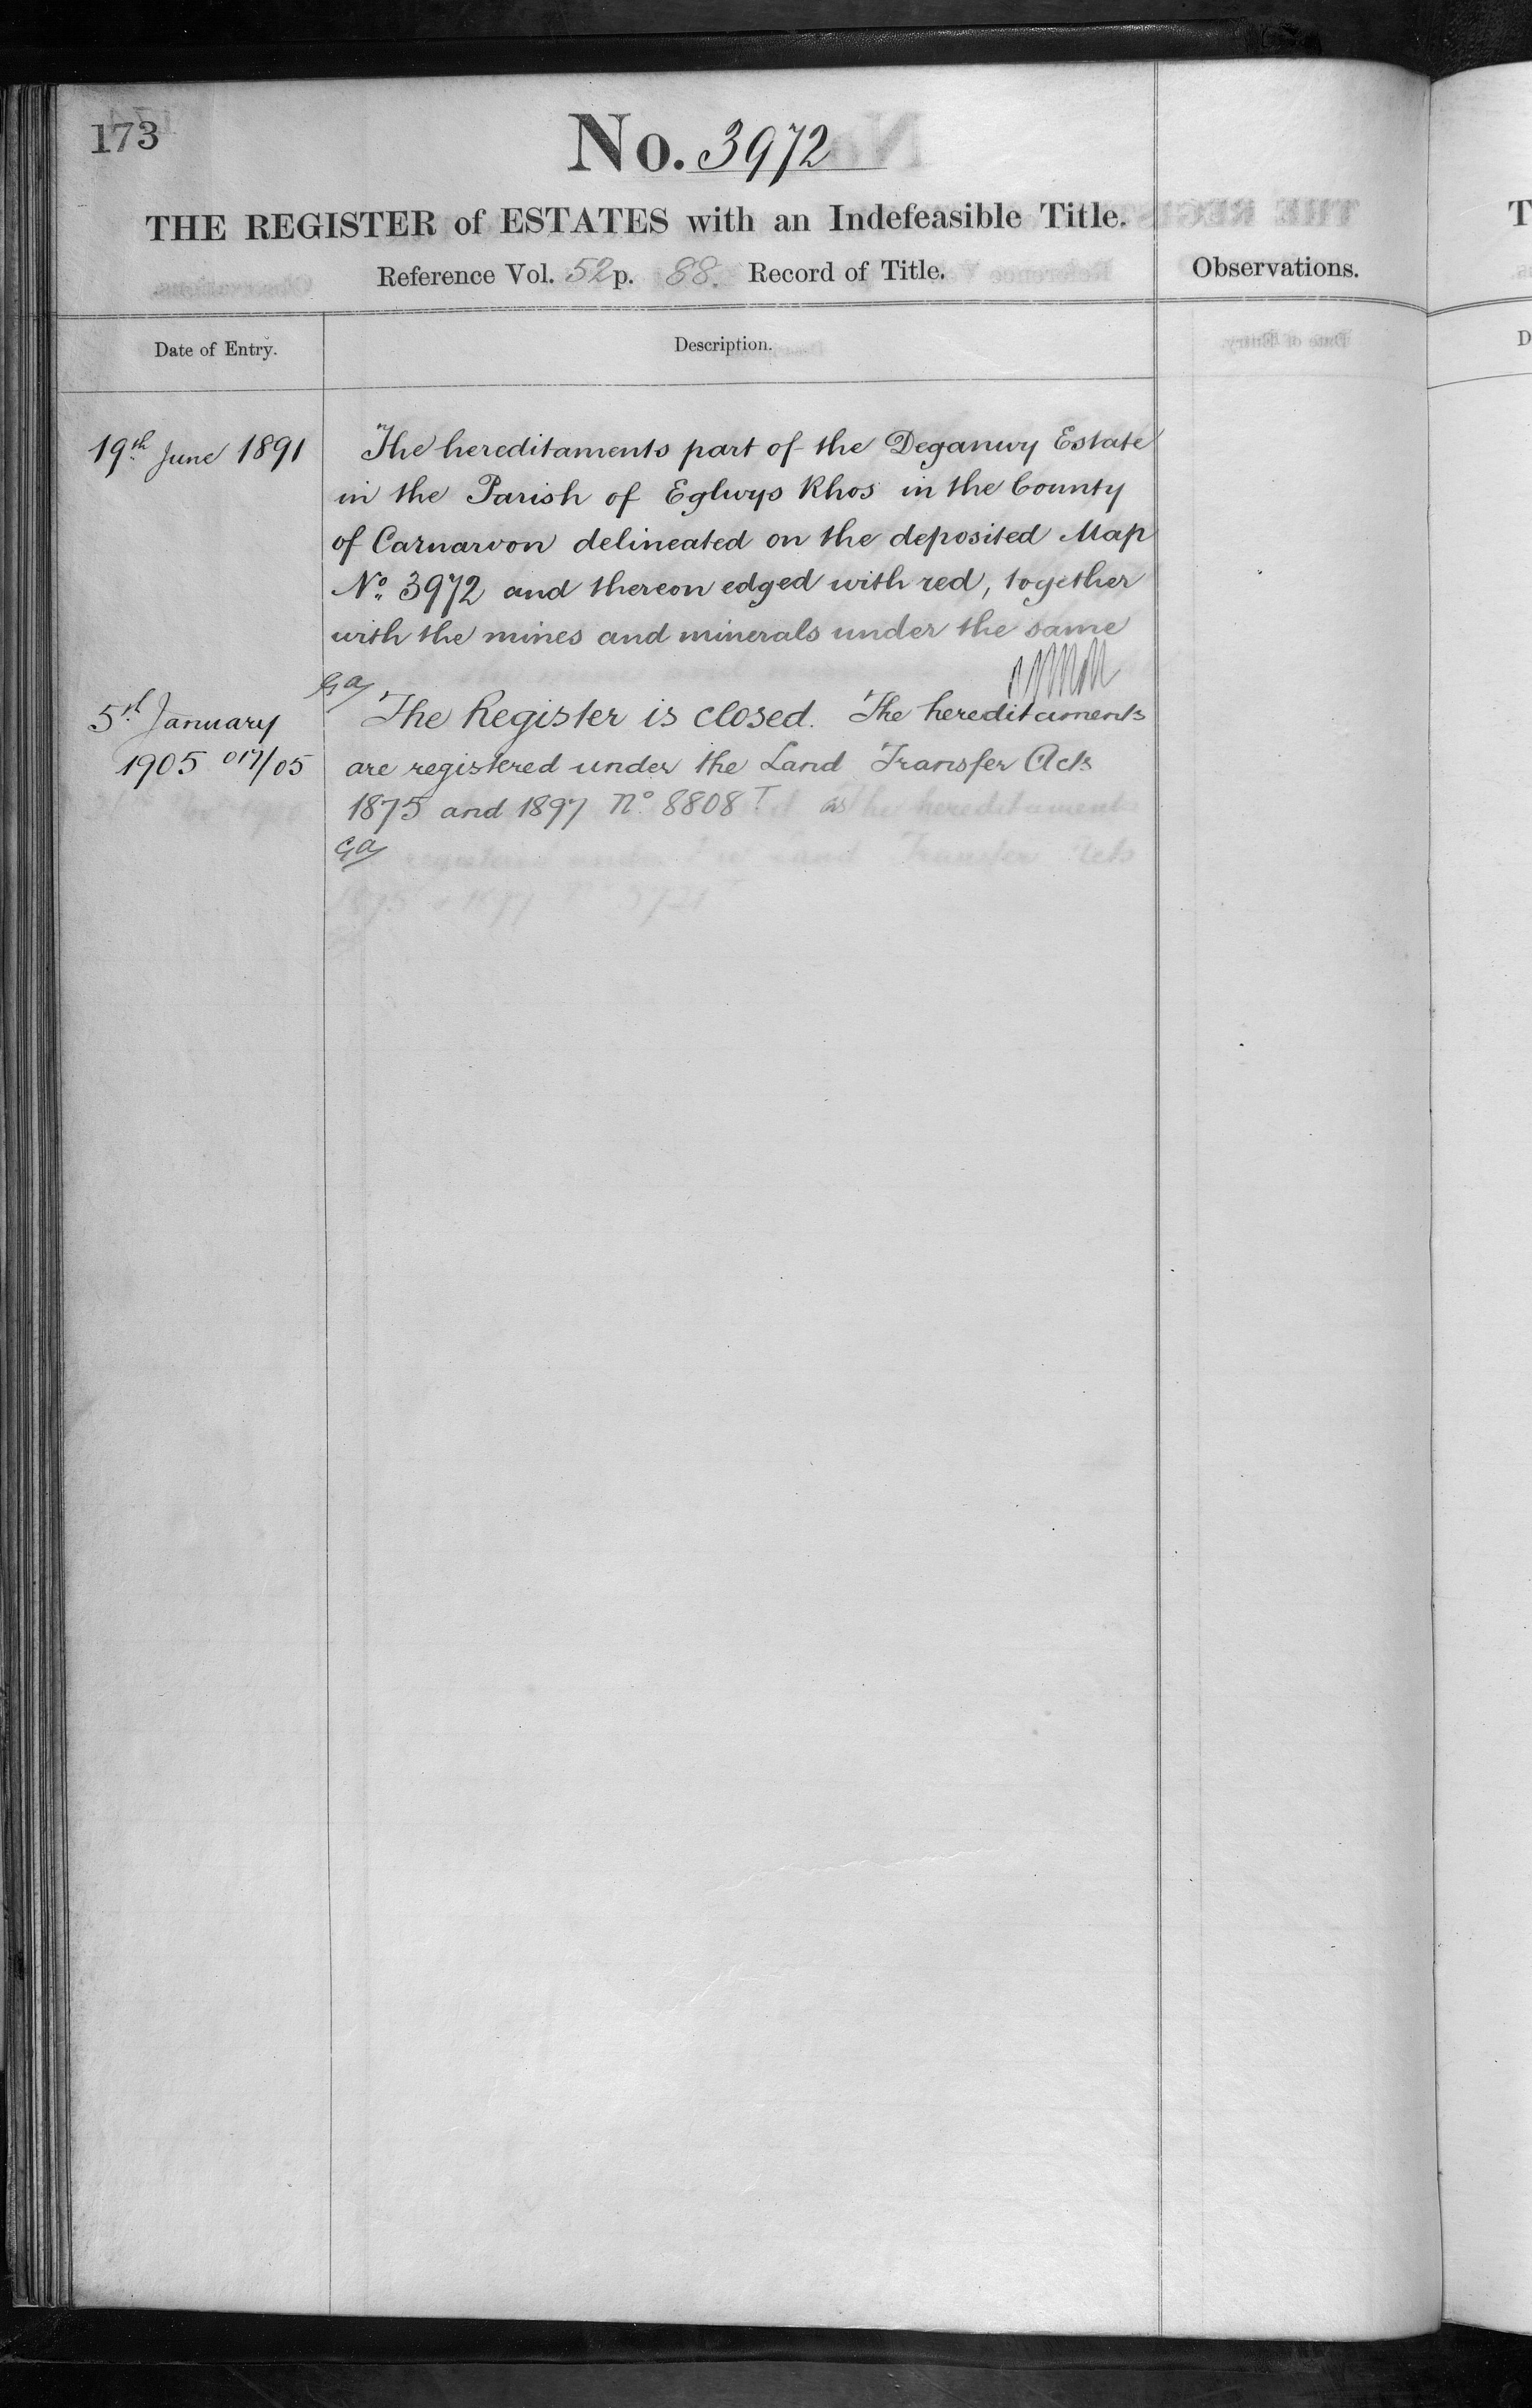 173
No. 3972
THE REGISTER of ESTATES with an Indefeasible Title.
Reference Vol. 52 p. 88. Record of Title.
Observations.
Date of Entry.
Description.
19th June 1891
The hereditaments part of the Deganwy Estate
in the Parish of Eglwys Rhos in the County
of Carnarvon delineated on the deposited Map
No. 3972 and thereon edged with red, together
with the mines and minerals under the same
5th January
1905 017/05
The Register is closed. The hereditaments
are registered under the Land Transfer Acts
1875 and 1897 No. 8808 T